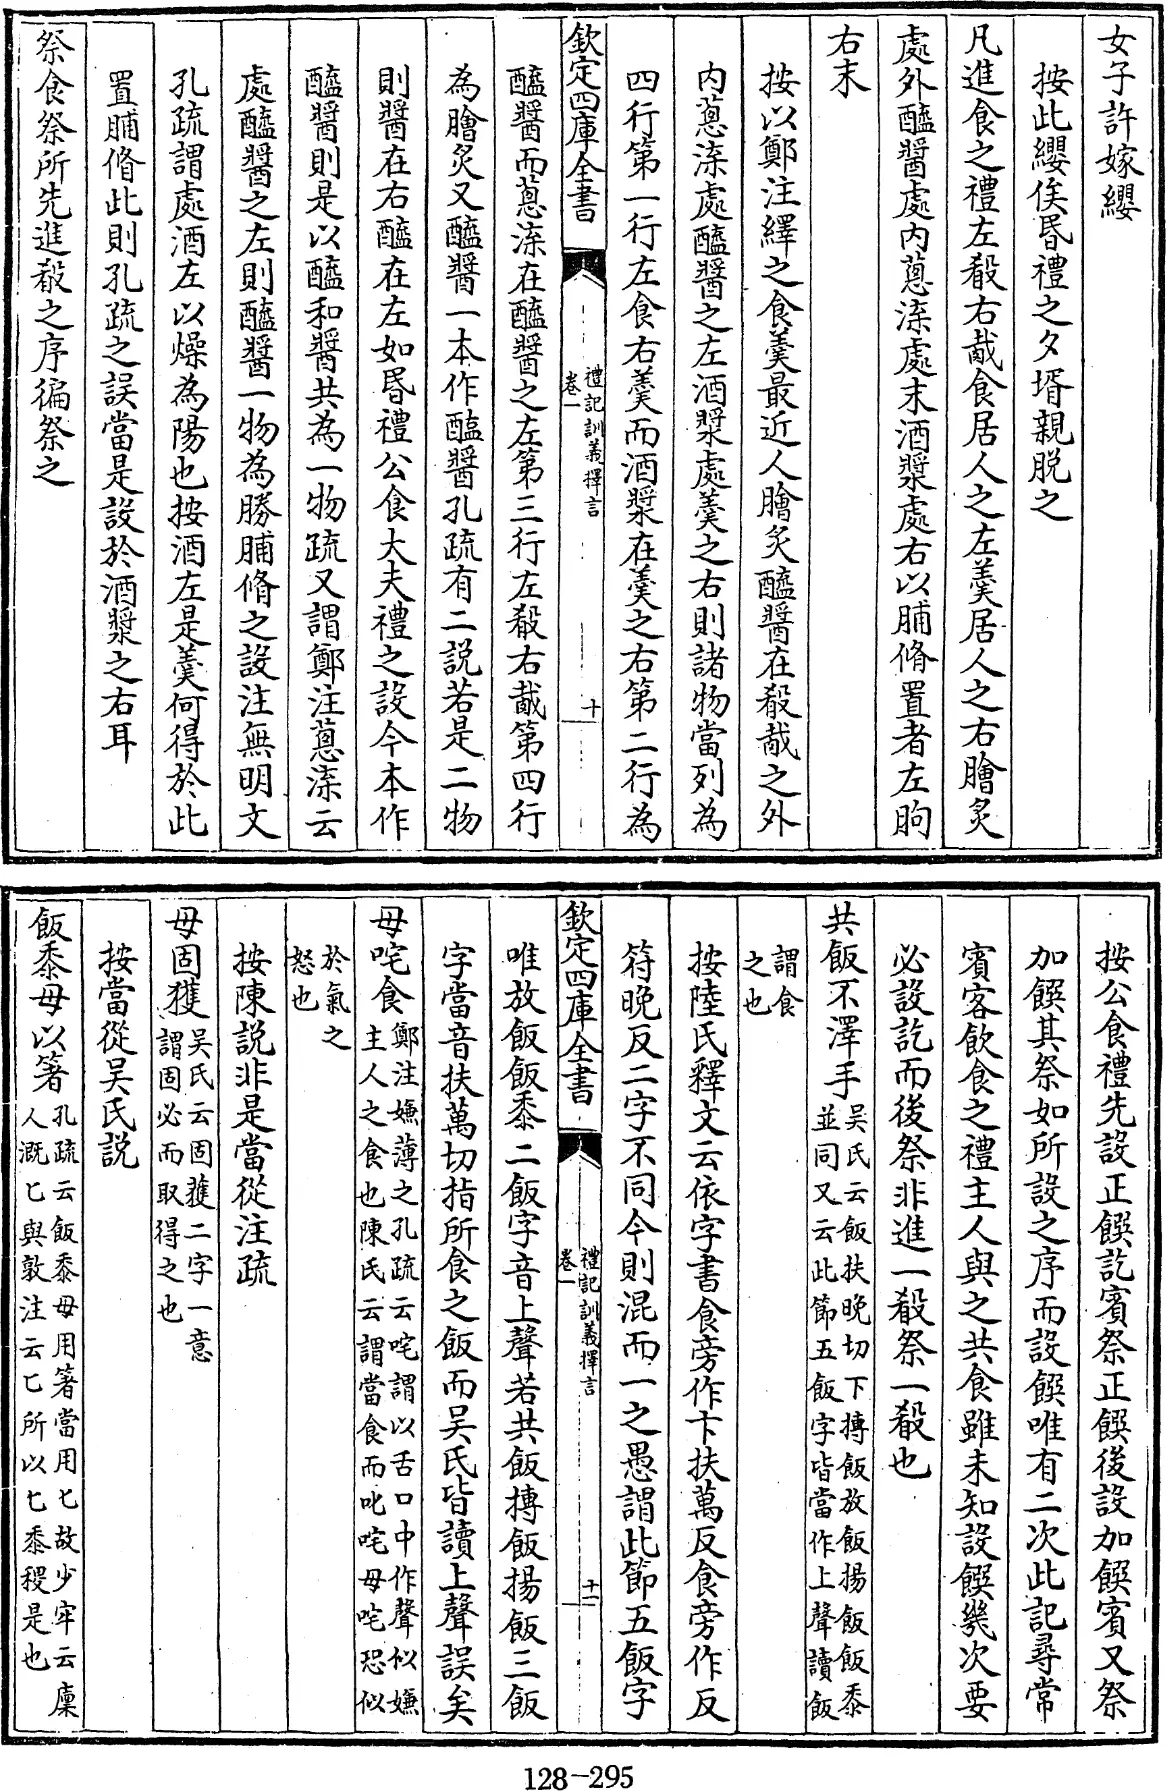 女子許嫁纓
按此纓俟昏禮之夕壻親脱之
凡進食之禮左殽右胾食居人之左羹居人之右膾炙
處外醯醬處内蔥渿處末酒漿處右以脯脩置者左朐
右末
按以鄭注繹之食羹最近人膾炙醯醬在殽胾之外
内蔥渿處醯醬之左酒漿處羹之右則諸物當列為
四行第一行左食右羹而酒漿在羹之右第二行為
欽定四庫全書
禮記訓義擇言
卷一
十
醯醬而蔥渿在醯醬之左第三行左殽右胾第四行
為膾炙又醯醬一本作醢醬孔疏有二説若是二物
則醬在右醯在左如昏禮公食大夫禮之設今本作
醯醬則是以醯和醬共為一物疏又謂鄭注蔥渿云
處醯醬之左則醯醬一物為勝脯脩之設注無明文
孔疏謂處酒左以燥為陽也按酒左是羹何得於此
置脯脩此則孔疏之誤當是設於酒漿之右耳
祭食祭所先進殽之序徧祭之
按公食禮先設正饌訖賓祭正饌後設加饌賓又祭
加饌其祭如所設之序而設饌唯有二次此記尋常
賓客飲食之禮主人與之共食雖未知設饌幾次要
必設訖而後祭非進一殽祭一殽也
共飯不澤手吳氏云飯扶晚切下摶飯放飯揚飯飯黍
並同又云此節五飯字皆當作上聲讀飯
謂食
之也
按陸氏釋文云依字書食旁作卞扶萬反食旁作反
符晚反二字不同今則混而一之愚謂此節五飯字
欽定四庫全書
禮記訓義擇言
卷一
十一
唯放飯飯黍二飯字音上聲若共飯摶飯揚飯三飯
字當音扶萬切指所食之飯而吳氏皆讀上聲誤矣
毋咤食鄭注嫌薄之孔疏云咤謂以舌口中作聲似嫌
主人之食也陳氏云謂當食而叱咤毋咤恐似
於氣之
怒也
按陳説非是當從注疏
毋固獲吳氏云固獲二字一意
謂固必而取得之也
按當從吳氏説
飯黍毋以箸孔疏云飯黍毋用箸當用匕故少牢云廩
人漑匕與敦注云匕所以匕黍稷是也
128-295